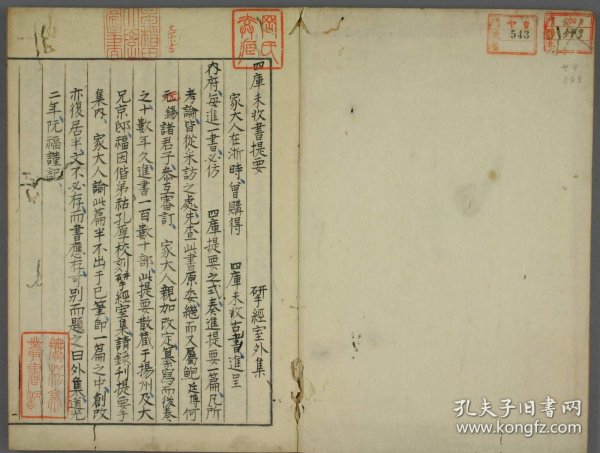 四庫未收書提要　揅經室外集
家大人在浙時曾購得　四庫未收古書進呈
內府每進一書必仿　四庫提要之式奏進提要一篇凡所
考論皆從采訪之處先查此書原委繼而又屬鮑廷博何
元錫諸君子參互審訂　家大人親加改定纂寫而後奏
之十數年久進書一百數十部此提要散藏于揚州及大
兄京邸福因偕弟祜孔厚校刻揅經室集請錄刊提要于
集內　家大人諭此篇半不出于己筆即一篇之中創改
亦復居半文不必存而書應存可別而題之曰外集道光
二年阮福謹記
543
543
孔夫子旧书网
www.kongfz.com